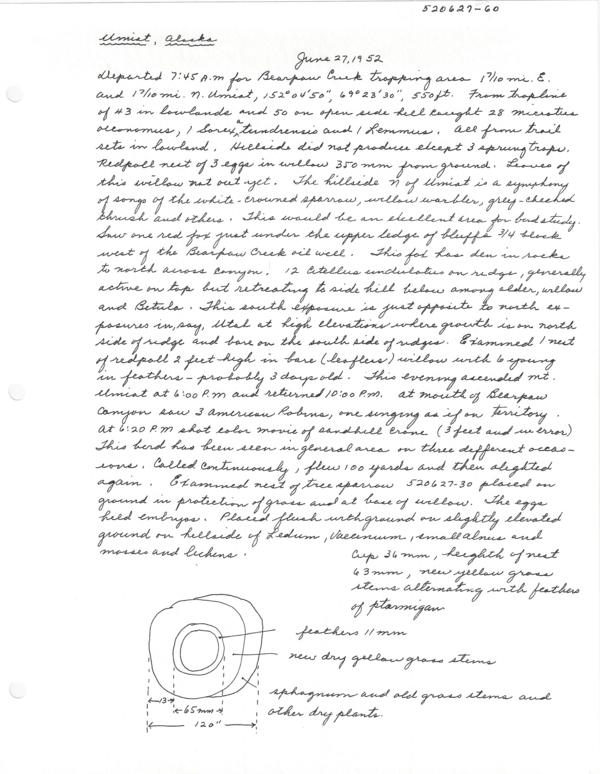 520627-60
Umiat, Alaska
June 27, 1952
Departed 7:45 A.M for Bearpaw Creek trapping area 1 7/10 mi. E.
and 1 7/10 mi. N. Umiat, 152° 04' 50", 69° 23' 30", 550 ft. From trapline
of 43 in lowlands and 50 on open side hill caught 28 microtus
oeconomus, 1 Sorex tundrensis and 1 Lemmus. All from trail
sets in lowland. Hillside did not produce except 3 sprung traps.
Redpoll nest of 3 eggs in willow 350 mm from ground. Leaves of
this willow not out yet. The hillside N of Umiat is a symphony
of songs of the white-crowned sparrow, willow warbler, grey-cheeked
thrush and others. This would be an excellent area for bird study.
Saw one red fox just under the upper ledge of bluffs 3/4 block
west of the Bearpaw Creek oil well. This fox has den in rocks
to north across canyon. 12 Citellus undulatus on ridge, generally
active on top but retreating to side hill below among alder, willow
and Betula. This south exposure is just opposite to north ex-
posures in, say, Utah at high elevations where growth is on north
side of ridge and bare on the south side of ridges. Examined 1 nest
of redpoll 2 feet high in bare (leafless) willow with 6 young
in feathers - probably 3 days old. This evening ascended mt.
Umiat at 6:00 P.M and returned 10:00 P.M. At mouth of Bearpaw
Canyon saw 3 American Robins, one singing as if on Territory.
At 6:20 P.M shot color movie of sandhill crane (3 feet and in error)
This bird has been seen in general area on three different occas-
ions. Called continuously, flew 100 yards and then alighted
again. Examined nest of tree sparrow 520627-30 placed on
ground in protection of grass and at base of willow. The eggs
held embryos. Placed flush with ground on slightly elevated
ground on hillside of Ledum, Vaccinium, small alnus and
mosses and lichens.
Cup 36 mm, heighth of nest
63 mm, new yellow grass
stems alternating with feathers
of ptarmigan
feathers 11 mm
new dry yellow grass stems
sphagnum and old grass stems and
other dry plants.
13
65 mm
120"